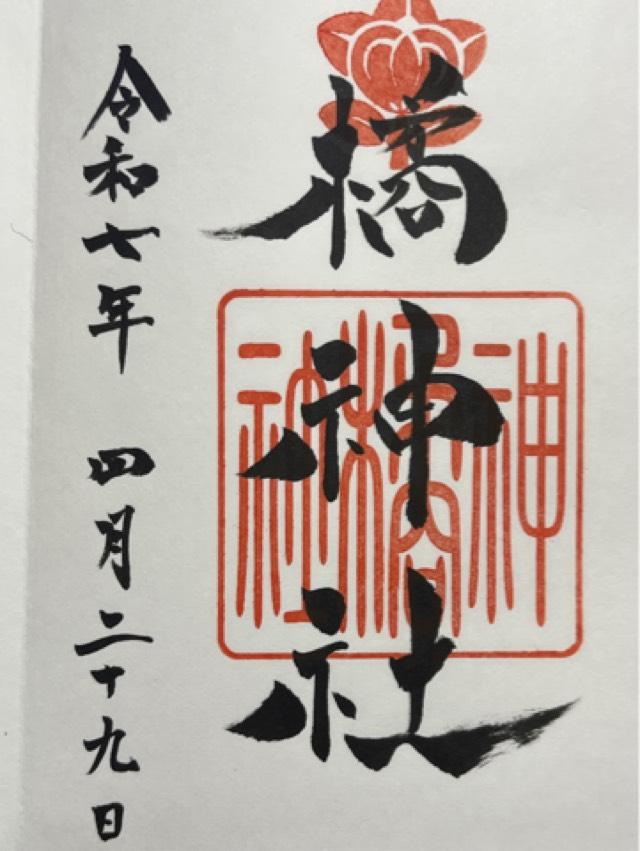 橘神社
神橘社
令和七年 四月二十九日